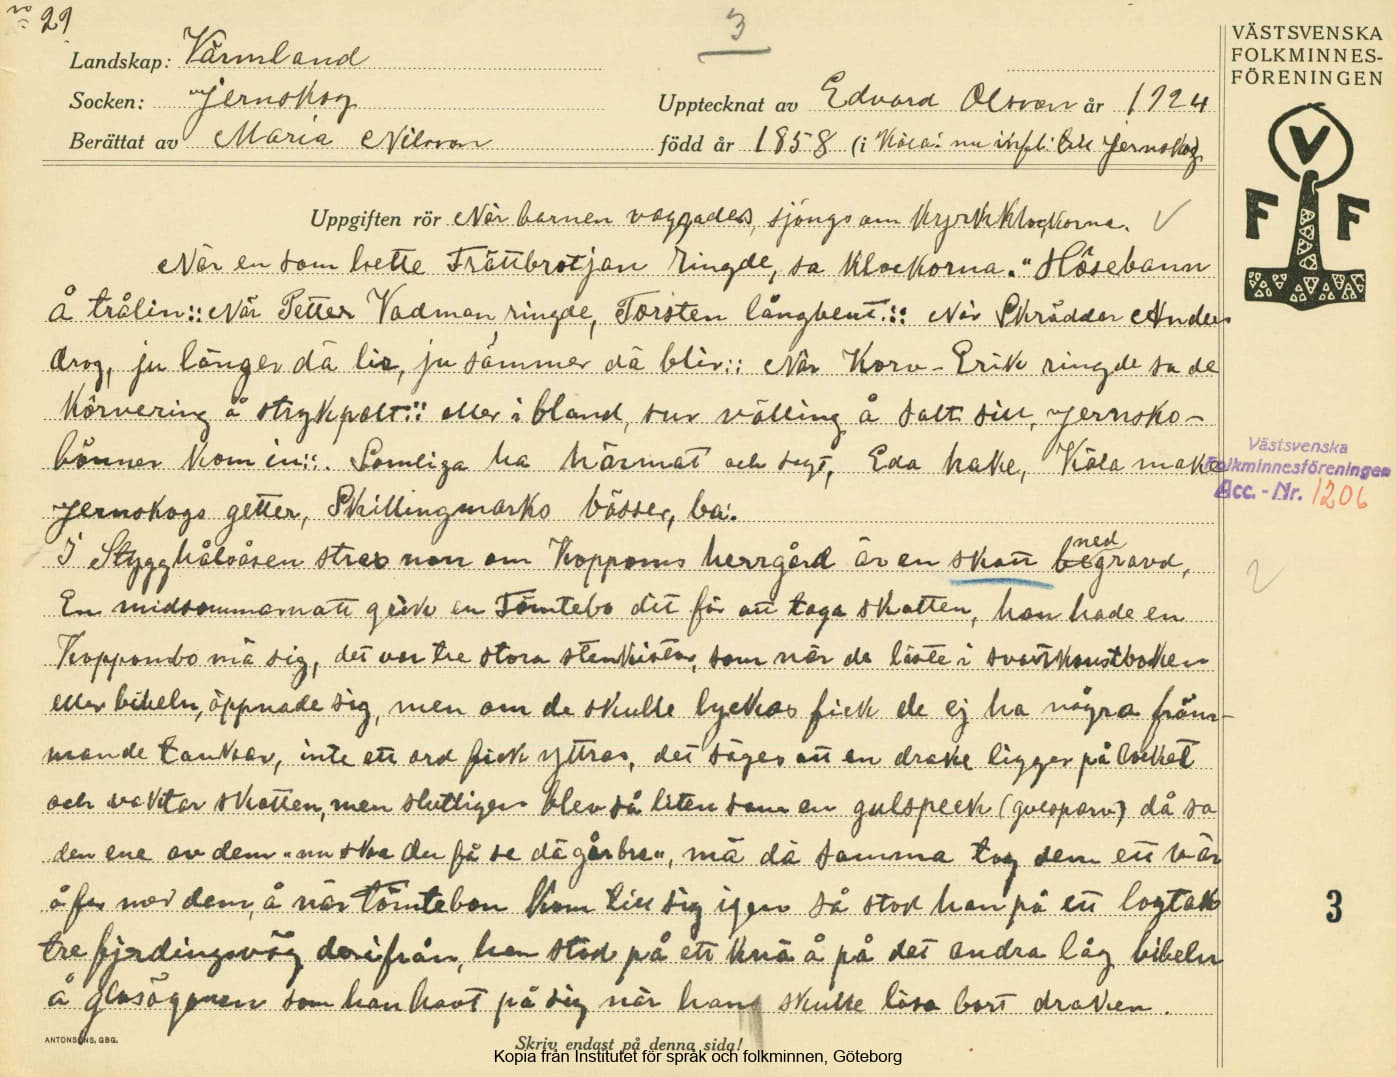 no 29
3
VÄSTSVENSKA
FOLKMINNES-
FÖRENINGEN
Landskap: Värmland
Socken: Jernskog
Upptecknat av Edvard Olsson år 1924
Berättat av Maria Nilsson
född år 1858 (i Köla: nu Jernskog
V
F F
Uppgiften rör När barnen vaggades, sjöngs om kyrkklockorna. V
När en som hette Trättbrotjan ringde, sa klockorna." Hôsebann
å trålin:: När Petter Vadman ringde, Torsten långbent.:: När Skräddar Anders
drog, ju länger dä lir, ju sämmer dä blir:: När Korv-Erik ringde sa de
Körvering å strykpalt:: eller i bland, sur välling å salt sill, Jernsko-
bônner kom in::. Somliga ha härmat och sagt, Eda hake, Köla make
Jernskogs getter, Skillingmarks bässer, ba:.
Västsvenska
Folkminnesföreningen
Acc.-Nr. 1206
I Stygghålsåsen strax norr om Koppoms herrgård är en skatt begravd,
ned
2
En midsommarnatt gick en Tömtebo dit för att taga skatten, han hade en
Koppombo mä sig, det var tre stora stenkistor, som när de läste i svartkonstboken
eller bibeln, öppnade sig, men om de skulle lyckas fick de ej ha några främ-
mande tankar, inte ett ord fick yttras, det säges att en drake ligger på locket
och vaktar skatten, men slutligen blev så liten som en gulspeck (gulsparv) då sa
den ene av dem "nu ska du få se dä går bra", mä dä samma tog dem ett vär
å for med dem, å när Tömtebon kom till sig igen så stod han på ett logtak
tre fjerdingsväg derifrån, han stod på ett knä å på det andra låg bibeln
å glasögonen som han havt på sig när han skulle läsa bort draken.
3
ANTONSONS, GBG.
Skriv endast på denna sida!
Kopia från Institutet för språk och folkminnen, Göteborg